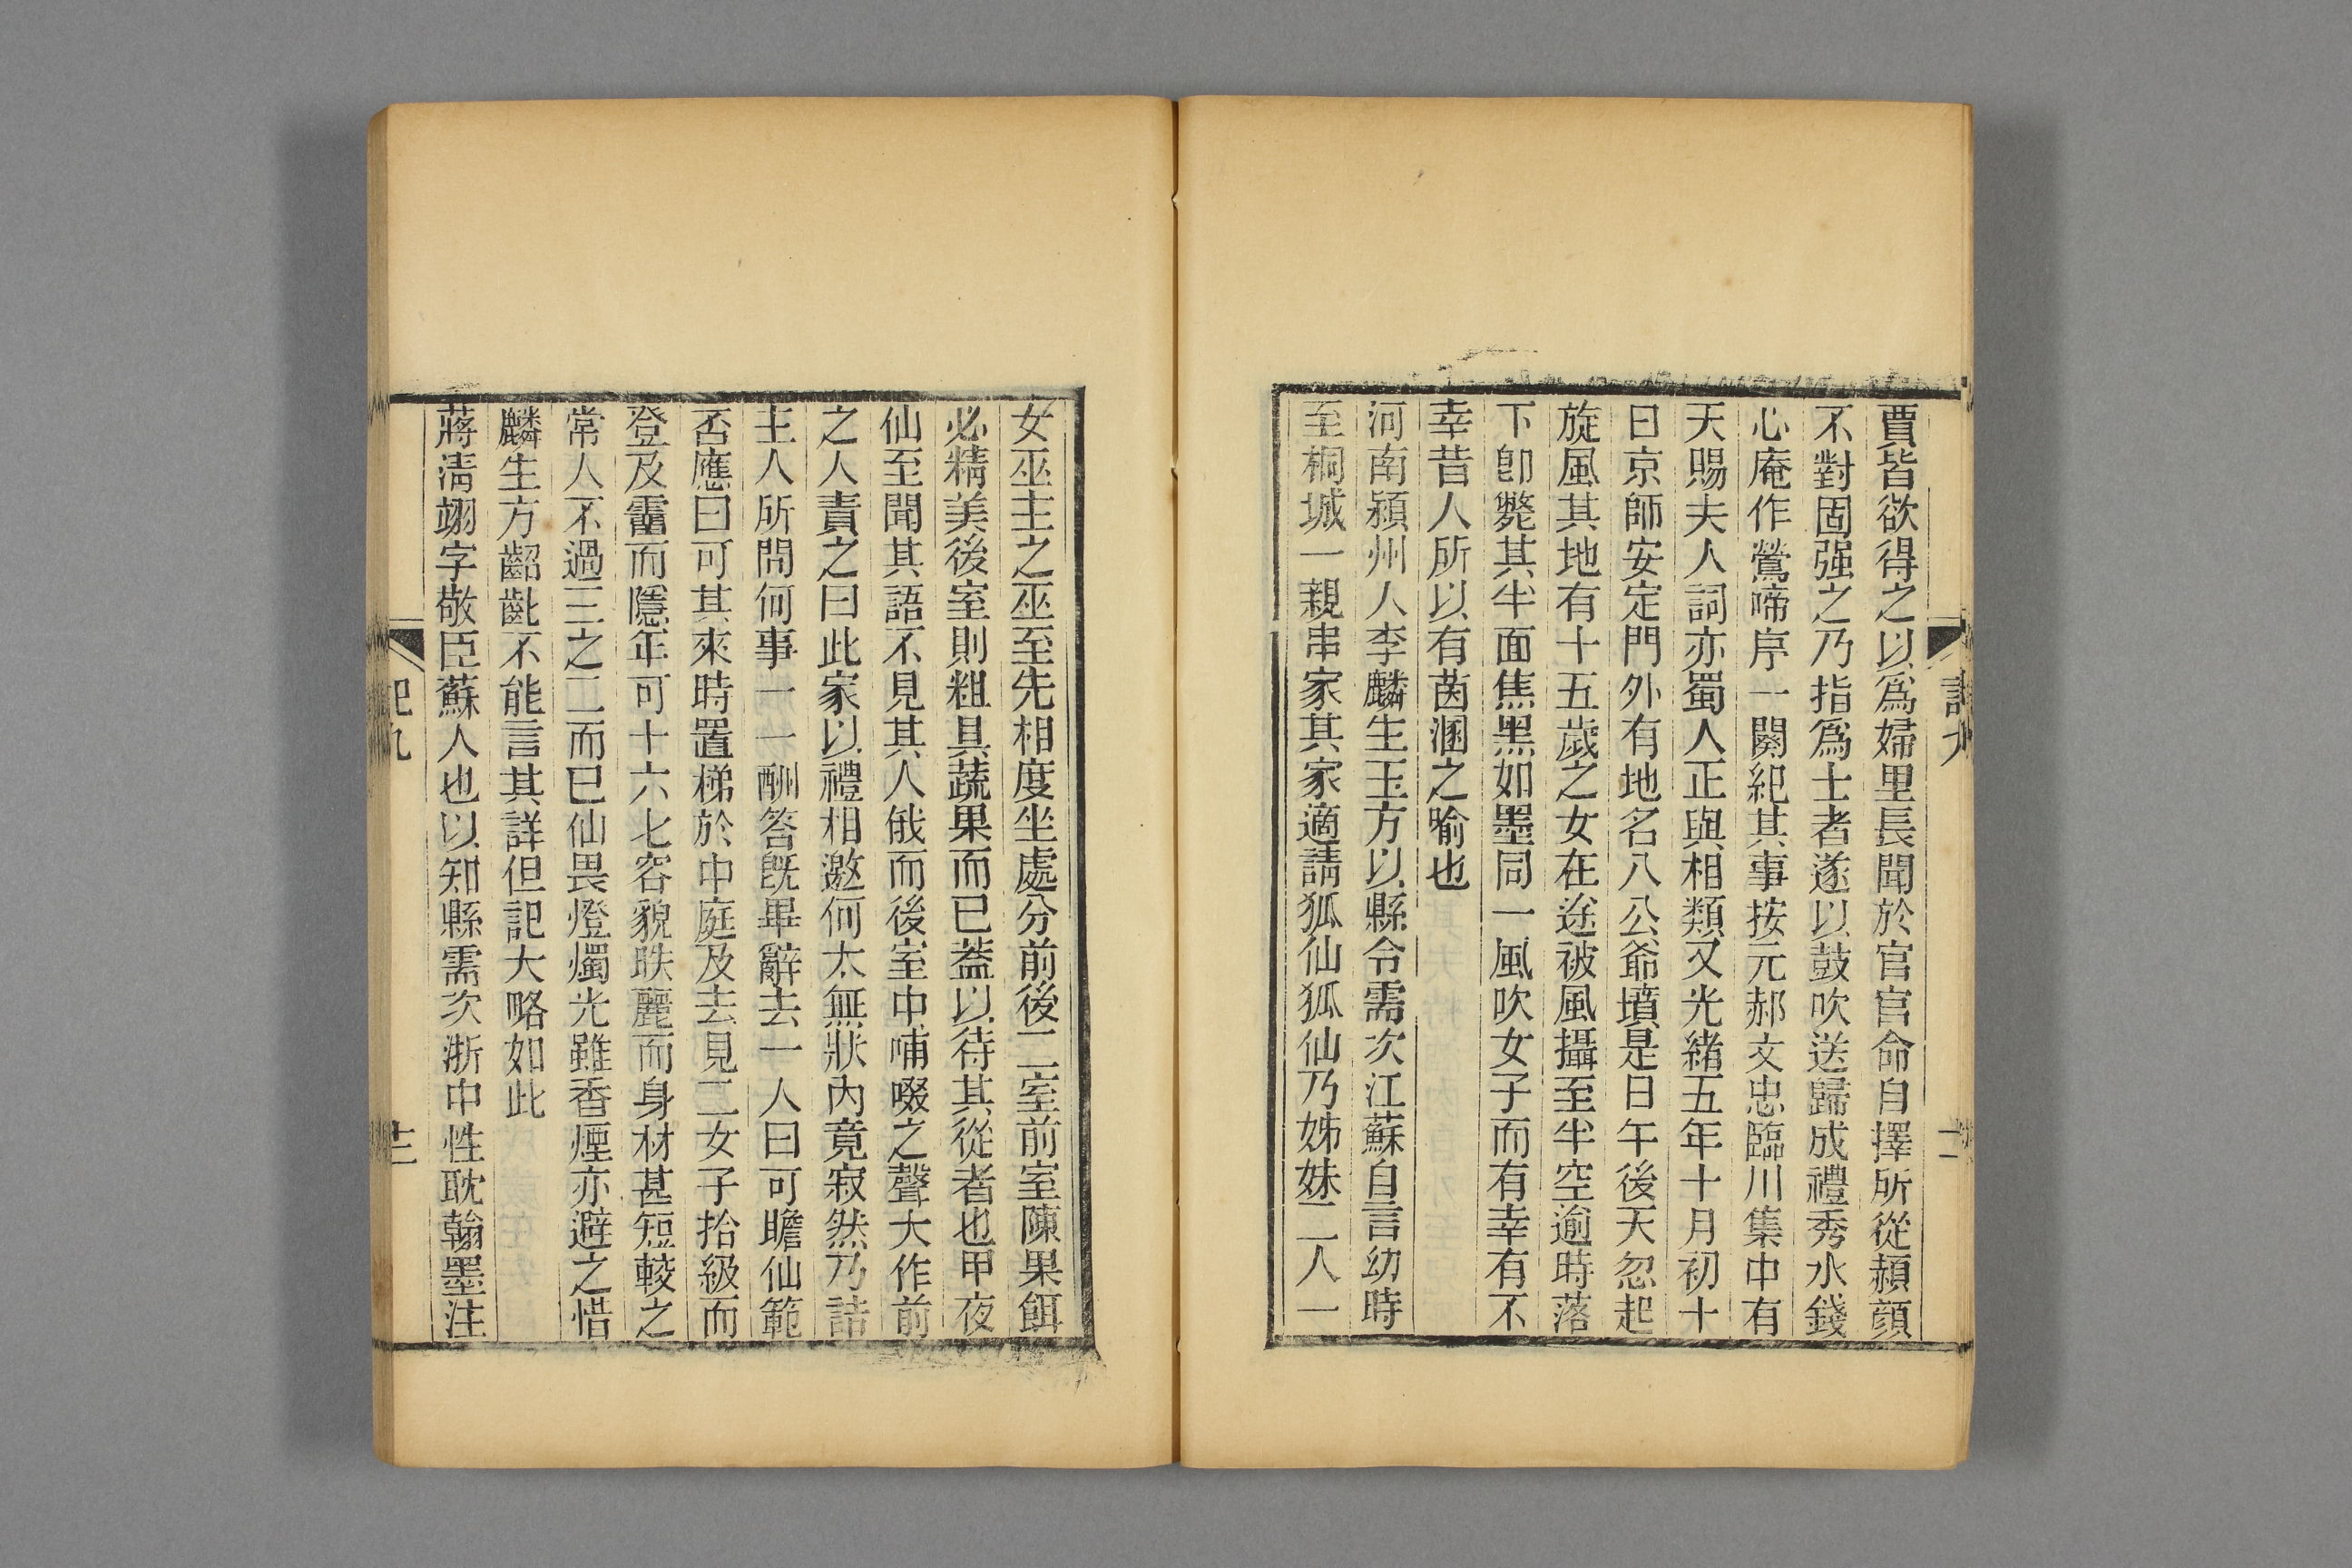 賈皆欲得之以爲婦里長聞於官官命自擇所從頳顔
不對固强之乃指爲士者遂以鼓吹送歸成禮秀水錢
心庵作鶯啼序一闋紀其事按元郝文忠臨川集中有
天賜夫人詞亦蜀人正與相類又光緒五年十月初十
日京師安定門外有地名八公爺墳是日午後天忽起
旋風其地有十五歲之女在途被風攝至半空逾時落
下卽斃其半面焦黑如墨同一風吹女子而有幸有不
幸昔人所以有茵溷之喻也
河南潁州人李麟生玉方以縣令需次江蘇自言幼時
至桐城一親串家其家適請狐仙狐仙乃姊妹二人一
女巫主之巫至先相度坐處分前後二室前室陳果餌
必精美後室則粗具蔬果而已蓋以待其從者也甲夜
仙至聞其語不見其人俄而後室中哺啜之聲大作前
之人責之曰此家以禮相邀何太無狀内竟寂然乃詰
主人所問何事一一酬答旣畢辭去一人曰可瞻仙範
否應曰可其來時置梯於中庭及去見二女子拾級而
登及霤而隱年可十六七容貌昳麗而身材甚短較之
常人不過三之二而已仙畏燈燭光雖香煙亦避之惜
麟生方齠齔不能言其詳但記大略如此
蔣清翊字敬臣蘇人也以知縣需次浙中性耽翰墨注
記九